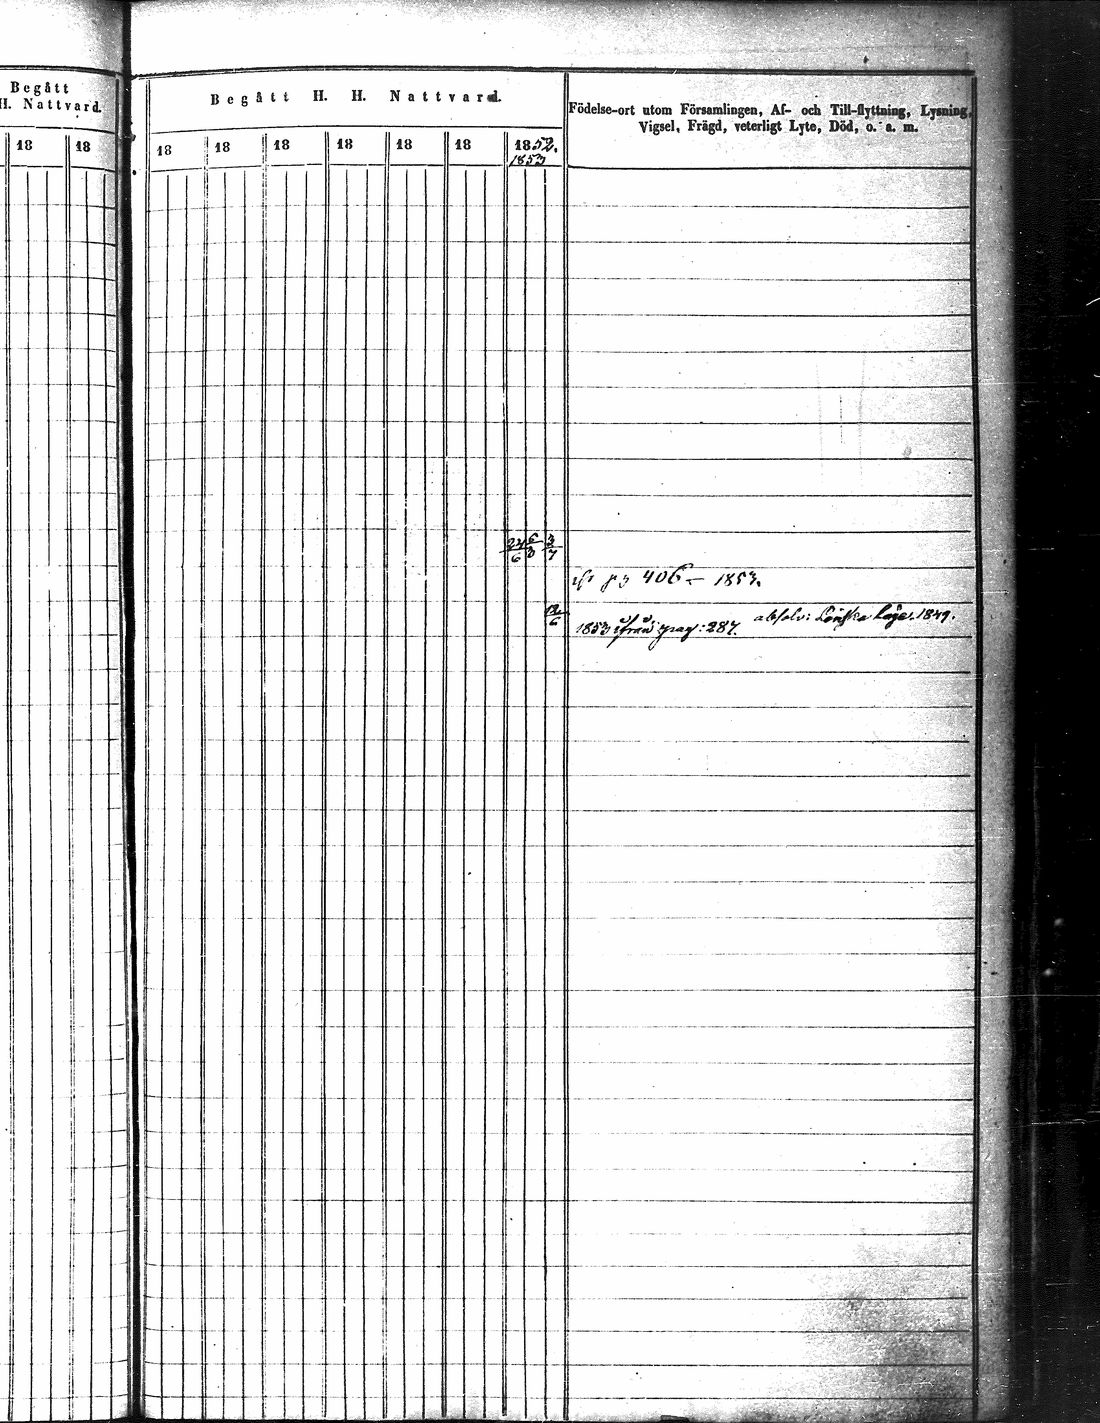 Begått
H. Nattvard.
18 18
Begått H. H. Nattvard.
18 18 18 18 18 18 1852.
1853
Födelse-ort utom Församlingen, Af- och Till-flyttning, Lysning,
Vigsel, Frägd, veterligt Lyte, Död, o. a. m.
24/6 6/3 3/7
406 – 1853.
12/6
absolv: 1849.
1853 ifrån pag: 287.